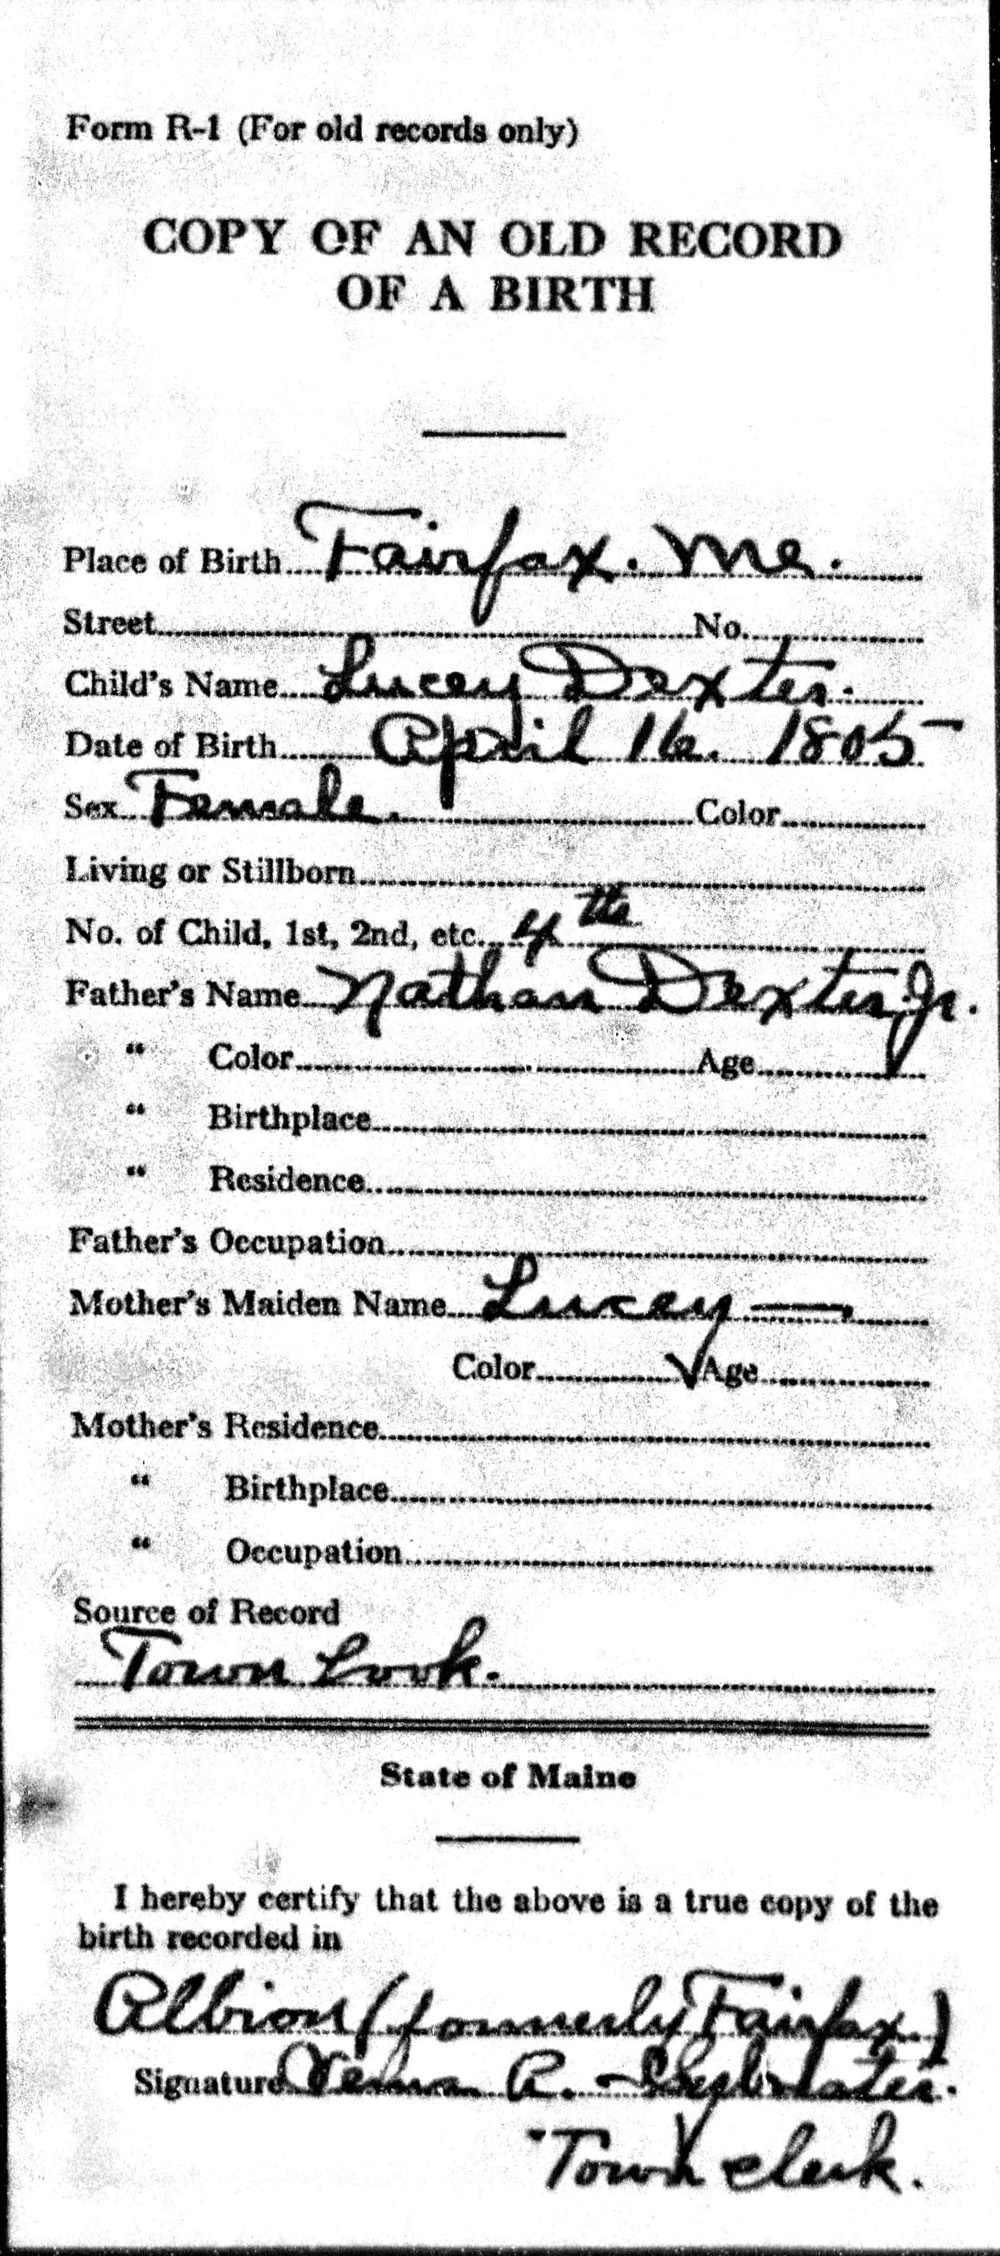 Form R-1 (For old records only)
COPY OF AN OLD RECORD
OF A BIRTH
Place of Birth Fairfax. Me.
Street No.
Child's Name Lucey Dexter.
Date of Birth April 16. 1805
Sex Female. Color
Living or Stillborn
No. of Child, 1st, 2nd, etc. 4th
Father's Name Nathan Dexter, Jr.
" Color Age
" Birthplace
" Residence
Father's Occupation
Mother's Maiden Name Lucey —
Color Age
Mother's Residence
" Birthplace
" Occupation
Source of Record
Town book.
State of Maine
I hereby certify that the above is a true copy of the
birth recorded in
Albion (formerly Fairfax.)
Signature A.
Town clerk.